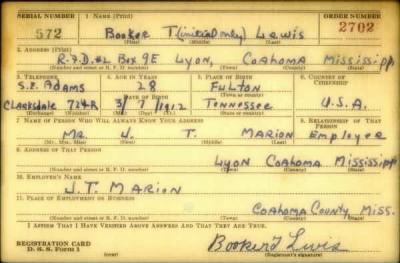 SERIAL NUMBER 1. NAME (Print) ORDER NUMBER
572 Booker T.(initial only) Lewis 2702
(First) (Middle) (Last)
2. ADDRESS (Print)
R.F.D. #2 Box 9E Lyon, Coahoma Mississippi
(Number and street or R. F. D. number) (Town) (County) (State)
3. TELEPHONE 4. AGE IN YEARS 5. PLACE OF BIRTH 6. COUNTRY OF CITIZENSHIP
S.E. Adams 28 Fulton
DATE OF BIRTH (Town or county)
Clarksdale 724R 3/ 7 /1912 Tennessee U.S.A.
(Exchange) (Number) (Mo.) (Day) (Yr.) (State or country)
7. NAME OF PERSON WHO WILL ALWAYS KNOW YOUR ADDRESS 8. RELATIONSHIP OF THAT PERSON
Mr. J. T. Marion Employer
(Mr., Mrs., Miss) (First) (Middle) (Last)
9. ADDRESS OF THAT PERSON
Lyon Coahoma Mississippi
(Number and street or R. F. D. number) (Town) (County) (State)
10. EMPLOYER'S NAME
J.T. Marion
11. PLACE OF EMPLOYMENT OR BUSINESS
Coahoma County, Miss.
(Number and street or R. F. D. number) (Town) (County) (State)
I AFFIRM THAT I HAVE VERIFIED ABOVE ANSWERS AND THAT THEY ARE TRUE.
REGISTRATION CARD
D. S. S. Form 1 Booker T Lewis
(over) (Registrant's signature)